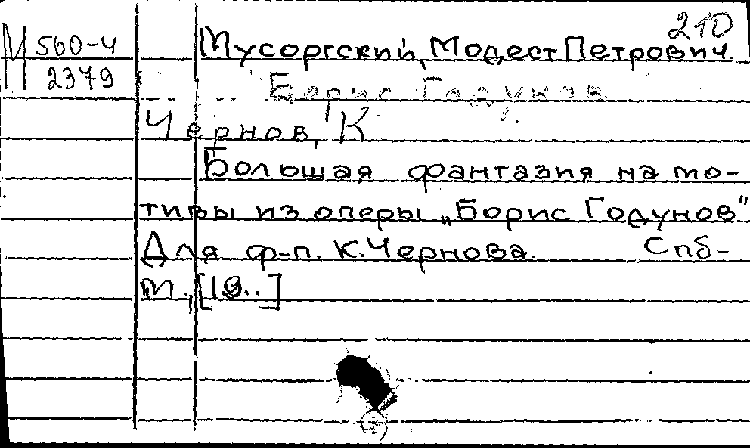 210
М 560-4
2379
Мусоргский, Модест Петрович
Борис Годунов
Чернов, К
Большая фантазия на мо-
тивы из оперы „Борис Годунов"
Для ф-п. К. Чернова. Спб-
м., [19..]